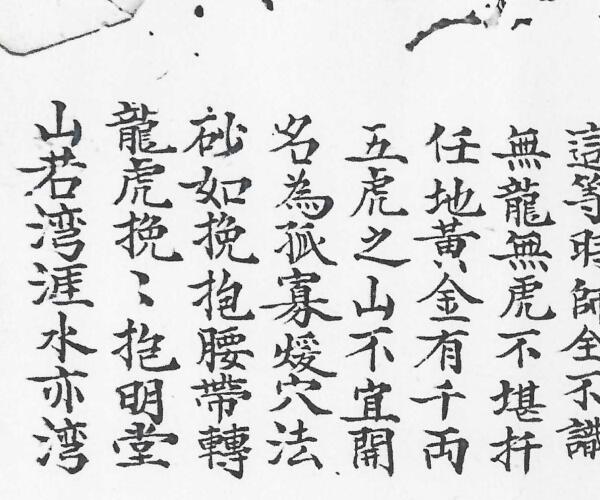 這等時師全不識
無龍無虎不堪扦
任地黃金有千両
五虎之山不宜開
名為孤寡煖穴法
砂如挽抱腰帶轉
龍虎挽〻抱明堂
山若湾涯水亦湾